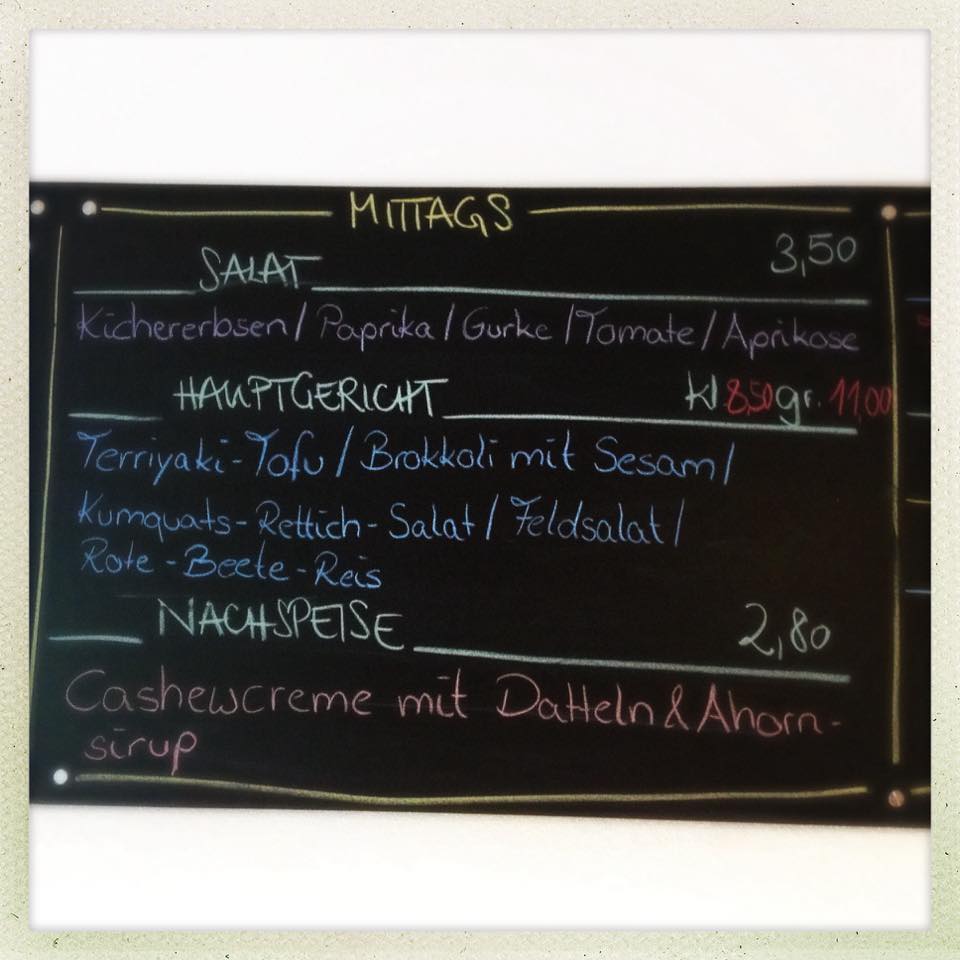 MITTAGS
SALAT 3,50
Kichererbsen / Paprika / Gurke / Tomate / Aprikose
HAUPTGERICHT kl 8,50 gr. 11,00
Terriyaki-Tofu / Brokkoli mit Sesam /
Kumquats-Rettich-Salat / Feldsalat /
Rote-Beete-Reis
NACHSPEISE 2,80
Cashewcreme mit Datteln & Ahorn-
sirup